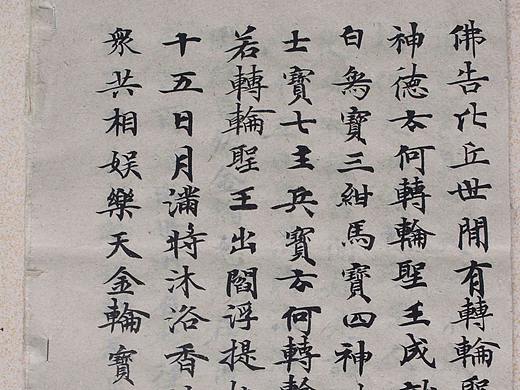 佛告比丘世間有轉輪聖
神德云何轉輪聖王成就
白象寶三紺馬寶四神
士寶七主兵寶云何轉輪
若轉輪聖王出閻浮提
十五日月滿時沐浴香
衆共相娛樂天金輪寶